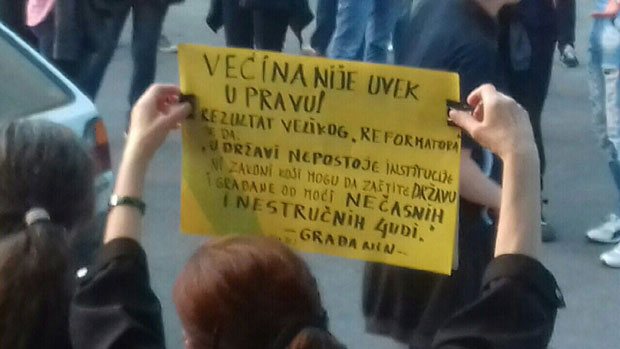 VEĆINA NIJE UVEK
U PRAVU!
REZULTAT VELIKOG, REFORMATORA
JE DA:
"U DRŽAVI NEPOSTOJE INSTITUCIJE
NI ZAKONI KOJI MOGU DA ZAŠTITE DRŽAVU
I GRAĐANE OD MOĆI NEČASNIH
I NESTRUČNIH LJUDI."
-GRAĐANIN-